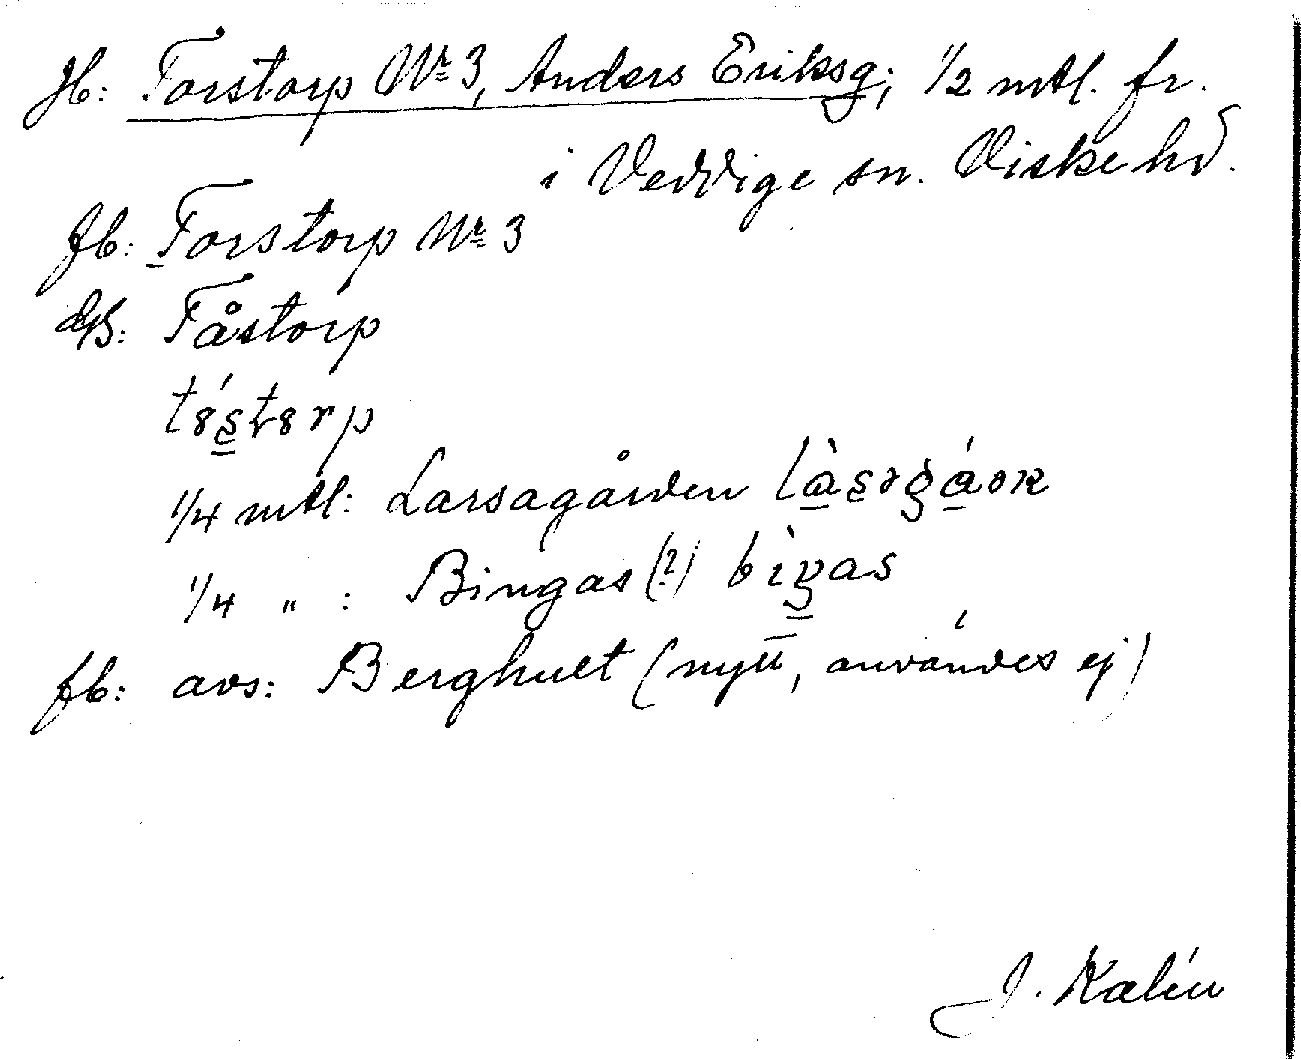 Jb: Torstorp Nr 3, Anders Eriksg; 1/2 mtl. fr.
i Veddige sn. Viske hd.
fb: Torstorp Nr 3
Tåstorp
1/4 mtl: Larsagården
1/4 „ : Bingas (?)
fb: avs: Berghult (nytt, användes ej)
J. Kalén